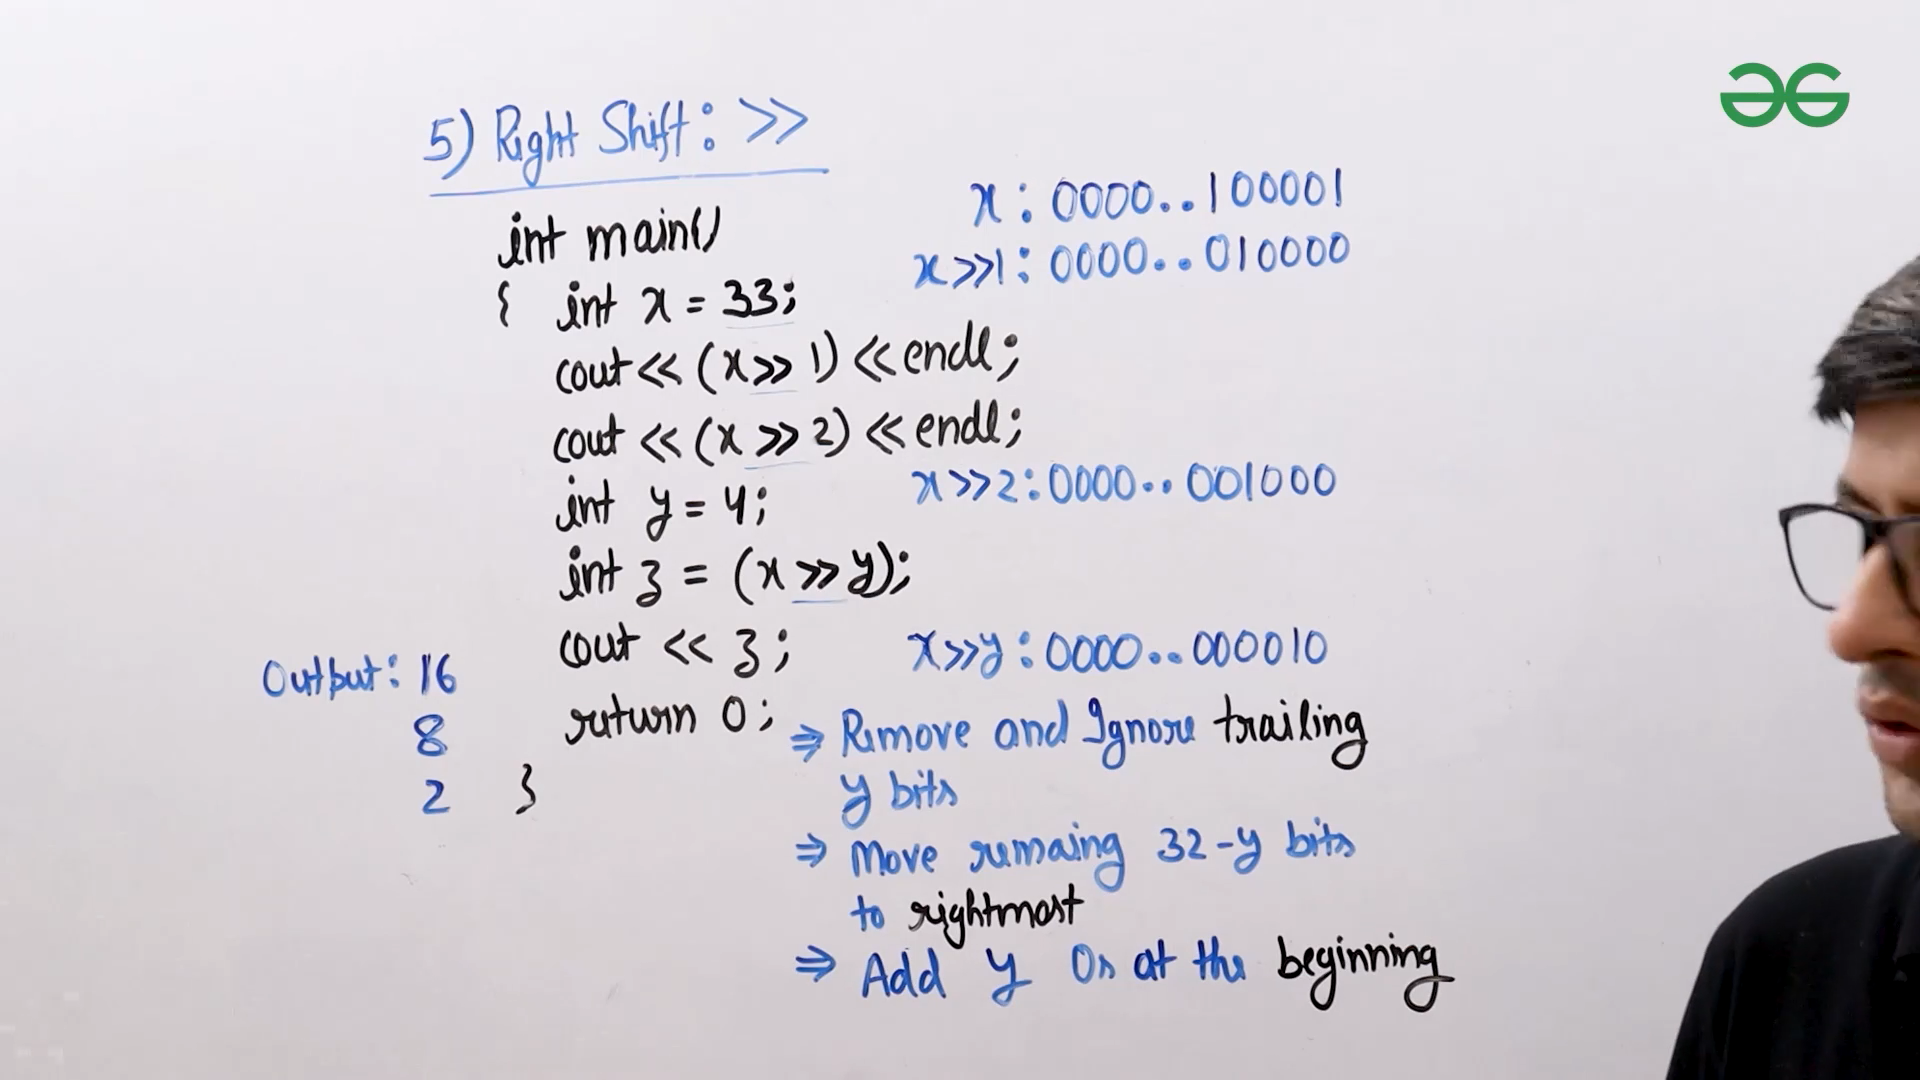 5) Right Shift: >>
int main()
{ int x = 33;
cout << (x >> 1) << endl;
cout << (x >> 2) << endl;
int y = 4;
int z = (x >> y);
cout << z;
return 0;
}
x : 0000..100001
x>>1 : 0000..010000
x>>2 : 0000..001000
x>>y : 0000..000010
Output: 16
8
2
⇒ Remove and Ignore trailing
y bits
⇒ Move remaing 32-y bits
to rightmost
⇒ Add y 0s at the beginning